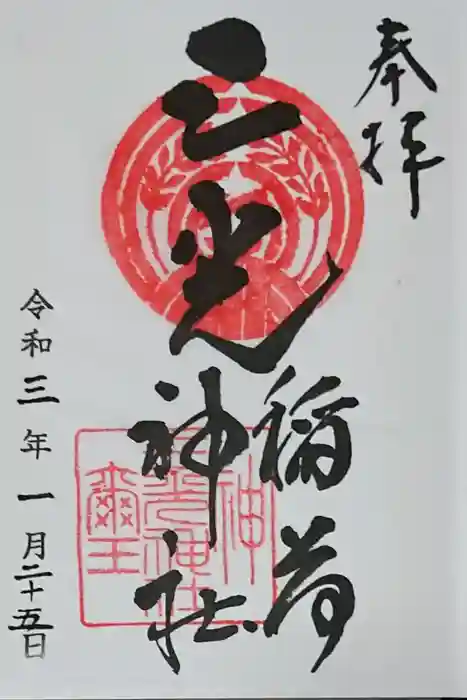 奉拝
三光
稲荷
神社
令和三年一月二十五日